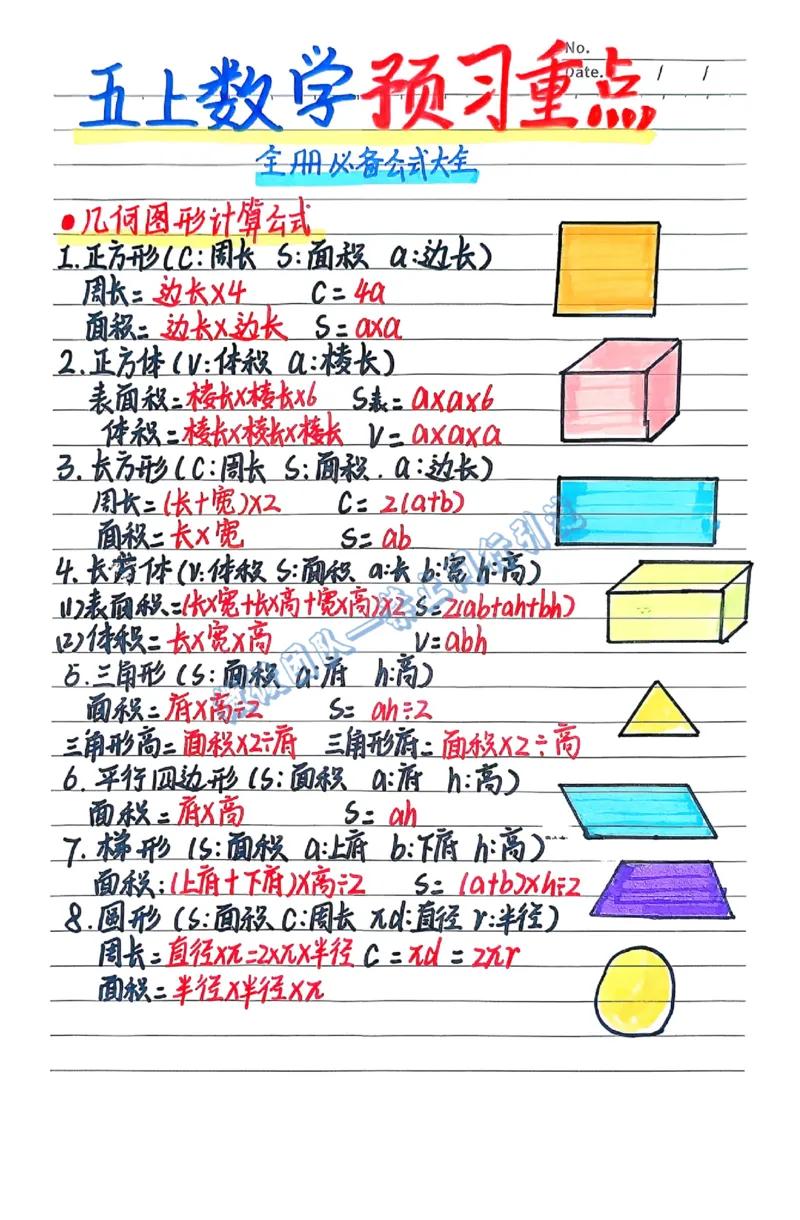 No.
Date. / /
五上数学预习重点
全册必备公式大全
•几何图形计算公式
1.正方形(C:周长 S:面积 a:边长)
周长=边长×4 C=4a
面积=边长×边长 S=a×a
2.正方体(V:体积 a:棱长)
表面积=棱长×棱长×6 S表=a×a×6
体积=棱长×棱长×棱长 V=a×a×a
3.长方形(C:周长 S:面积.a:边长)
周长=(长+宽)×2 C=2(a+b)
面积=长×宽 S=ab
4.长方体(V:体积 S:面积 a:长 b:宽 h:高)
(1)表面积=(长×宽+长×高+宽×高)×2 S=2(ab+ah+bh)
(2)体积=长×宽×高 V=abh
5.三角形(S:面积 a:府 h:高)
面积=府×高÷2 S=ah÷2
三角形高=面积×2÷府 三角形府=面积×2÷高
6.平行四边形(S:面积 a:府 h:高)
面积=府×高 S=ah
7.梯形(S:面积 a:上府 b:下府 h:高)
面积:(上府+下府)×高÷2 S=(a+b)×h÷2
8.圆形(S:面积 C:周长 πd:直径 r:半径)
周长=直径×π=2×π×半径 C=πd=2πr
面积=半径×半径×π